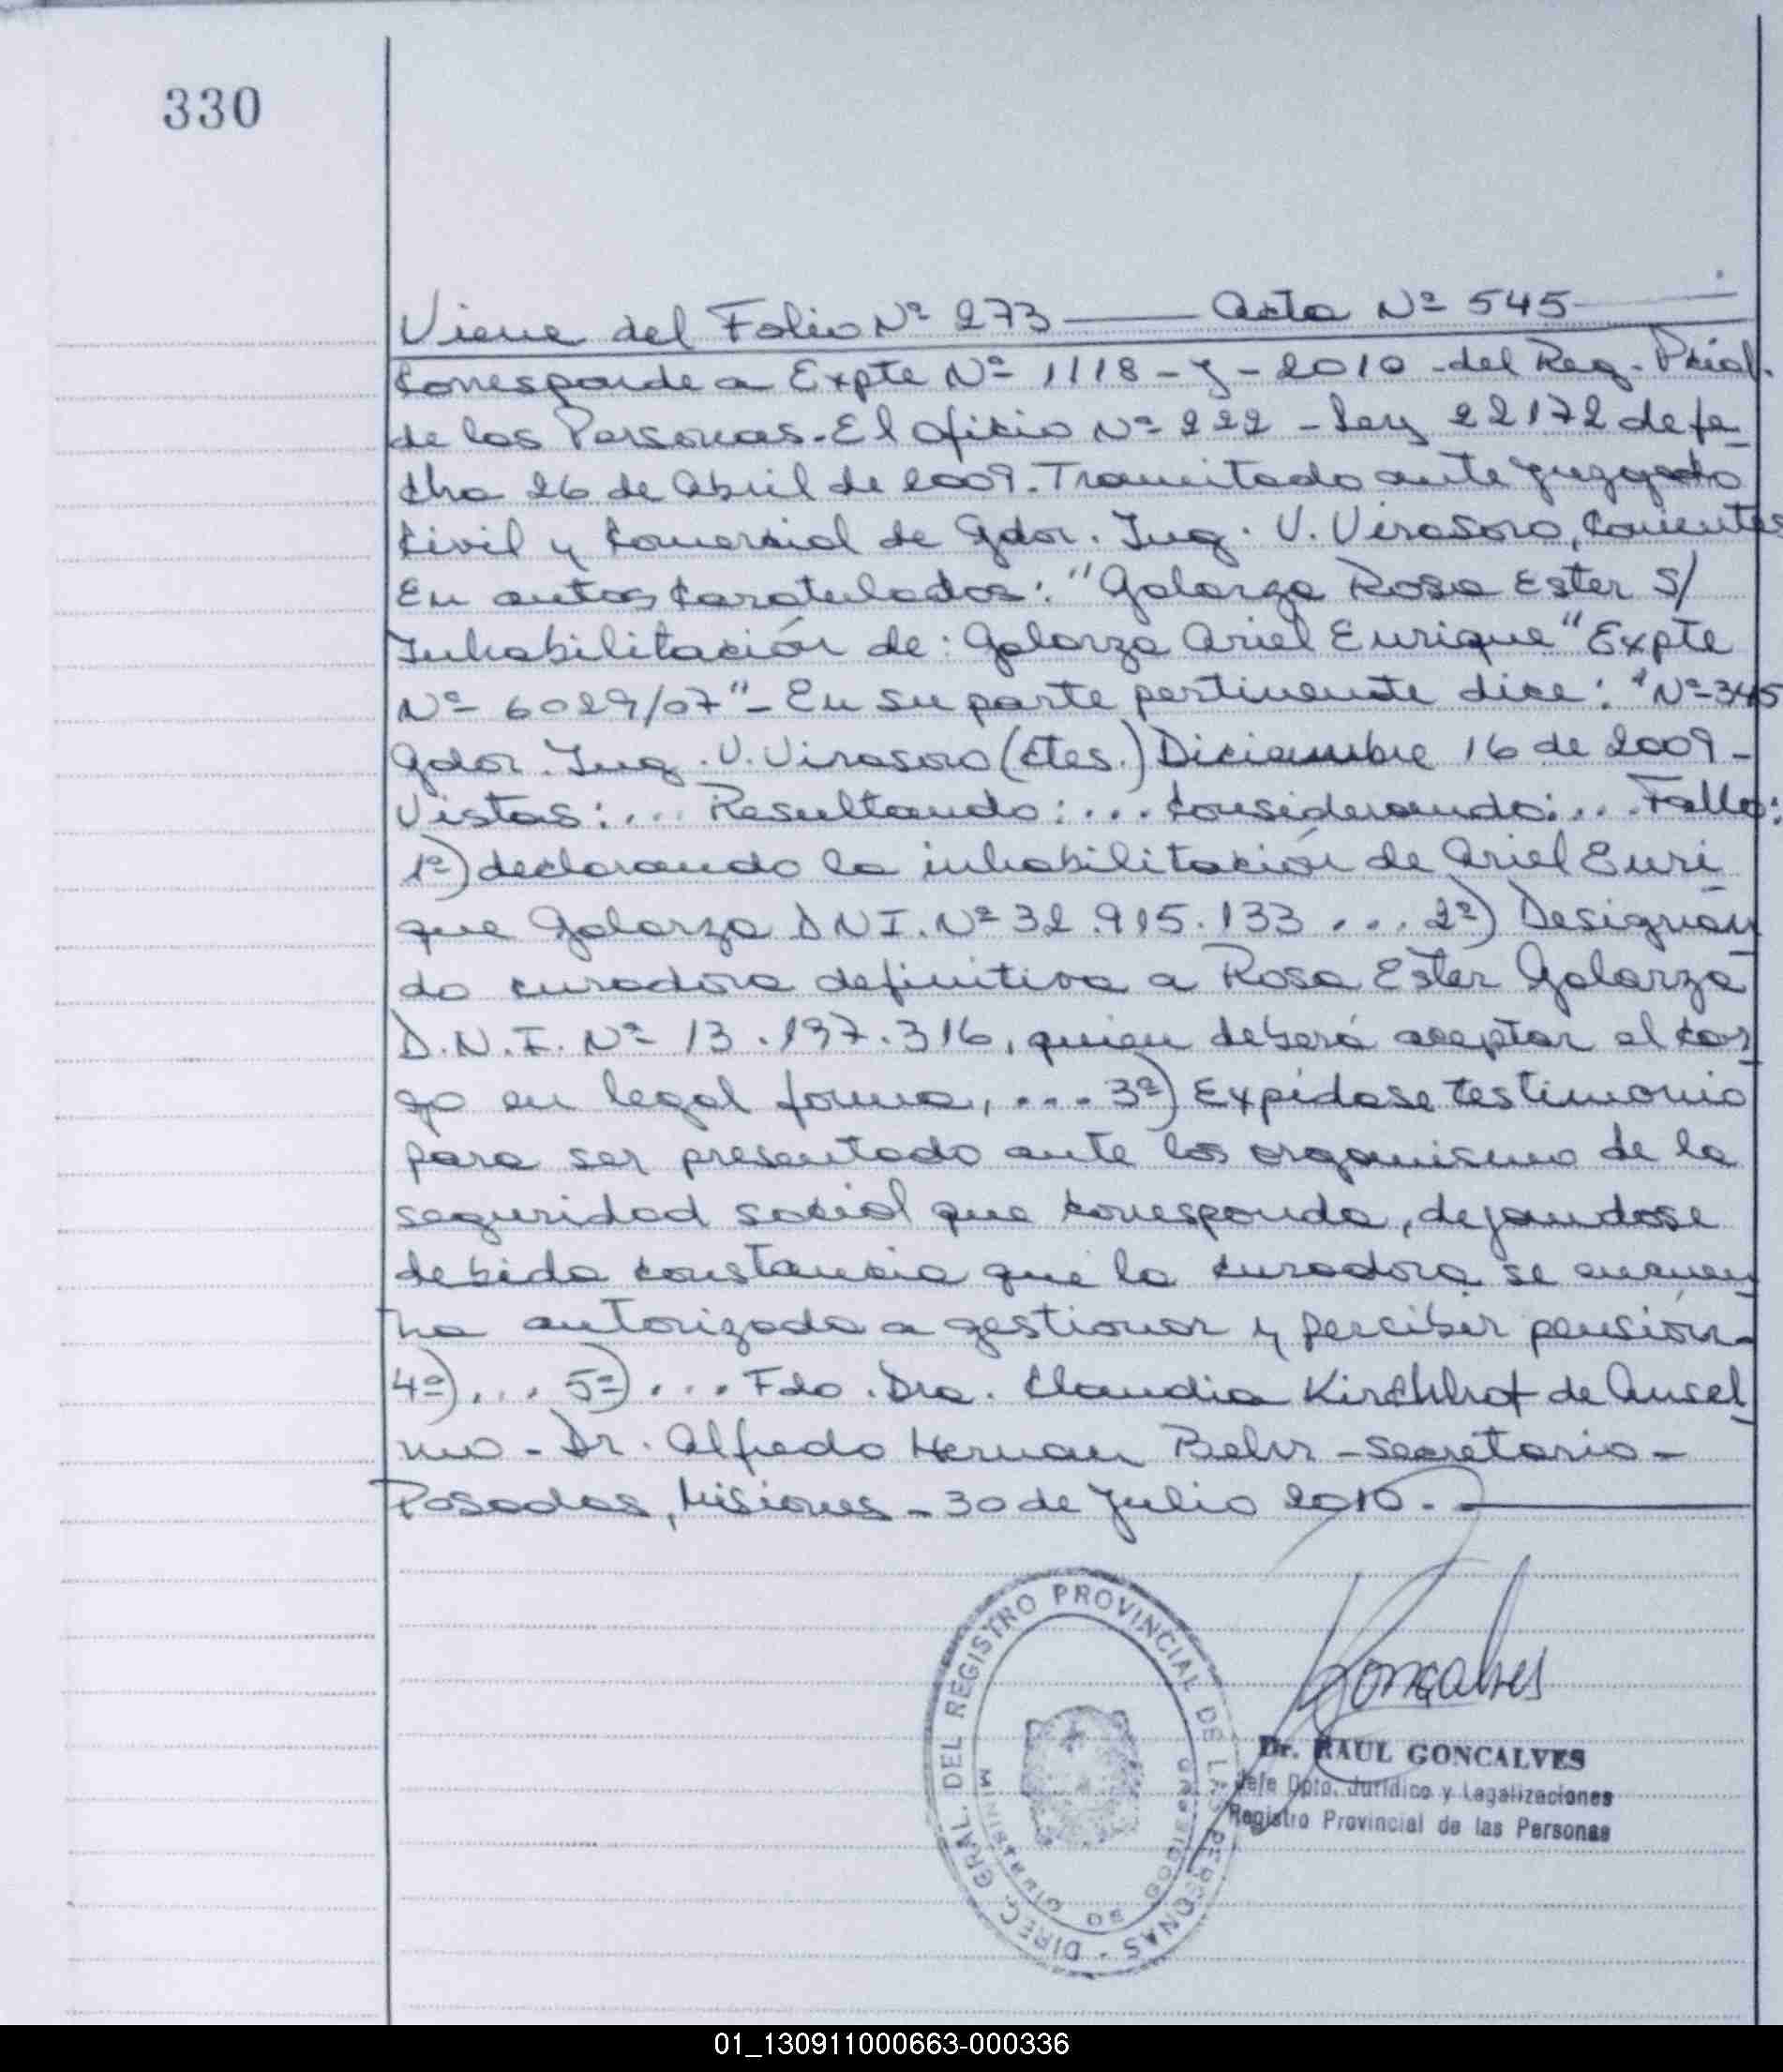 330
Viene del Folio Nº 273 —— Acta Nº 545 ——
Corresponde a Expte Nº 1118-J-2010 del Reg. Pcial.
de las Personas. El oficio Nº 222 - Ley 22172 de fe-
cha 26 de Abril de 2009. Tramitado ante Juzgado
Civil y Comercial de Gdor. Ing. V. Virasoro, Corrientes
En autos caratulados: "Galarza Rosa Ester S/
Inhabilitación de: Galarza Ariel Enrique" Expte
Nº 6029/07" - En su parte pertinente dice: "Nº 345
Gdor. Ing. V. Virasoro (Ctes.) Diciembre 16 de 2009 -
Vistos:... Resultando:... Considerando:... Fallo:
1º) declarando la inhabilitación de Ariel Enri-
que Galarza DNI. Nº 32.915.133 ... 2º) Designan-
do curadora definitiva a Rosa Ester Galarza
D.N.I. Nº 13.197.316, quien deberá aceptar el car-
go en legal forma, ... 3º) Expídase testimonio
para ser presentado ante los organismo de la
seguridad social que corresponda, dejandose
debida constancia que la curadora se encuen-
tra autorizada a gestionar y percibir pensión-
4º)... 5º)... Fdo. Dra. Claudia Kirchhof de Ansel-
mo - Dr. Alfredo Hernan Behr - Secretario -
Posadas, Misiones - 30 de Julio 2010. ——
DIREC. GRAL. DEL REGISTRO PROVINCIAL DE LAS PERSONAS -
MINISTERIO DE GOBIERNO
Goncalves
Dr. RAUL GONCALVES
Jefe Dpto. Jurídico y Legalizaciones
Registro Provincial de las Personas
01_130911000663-000336